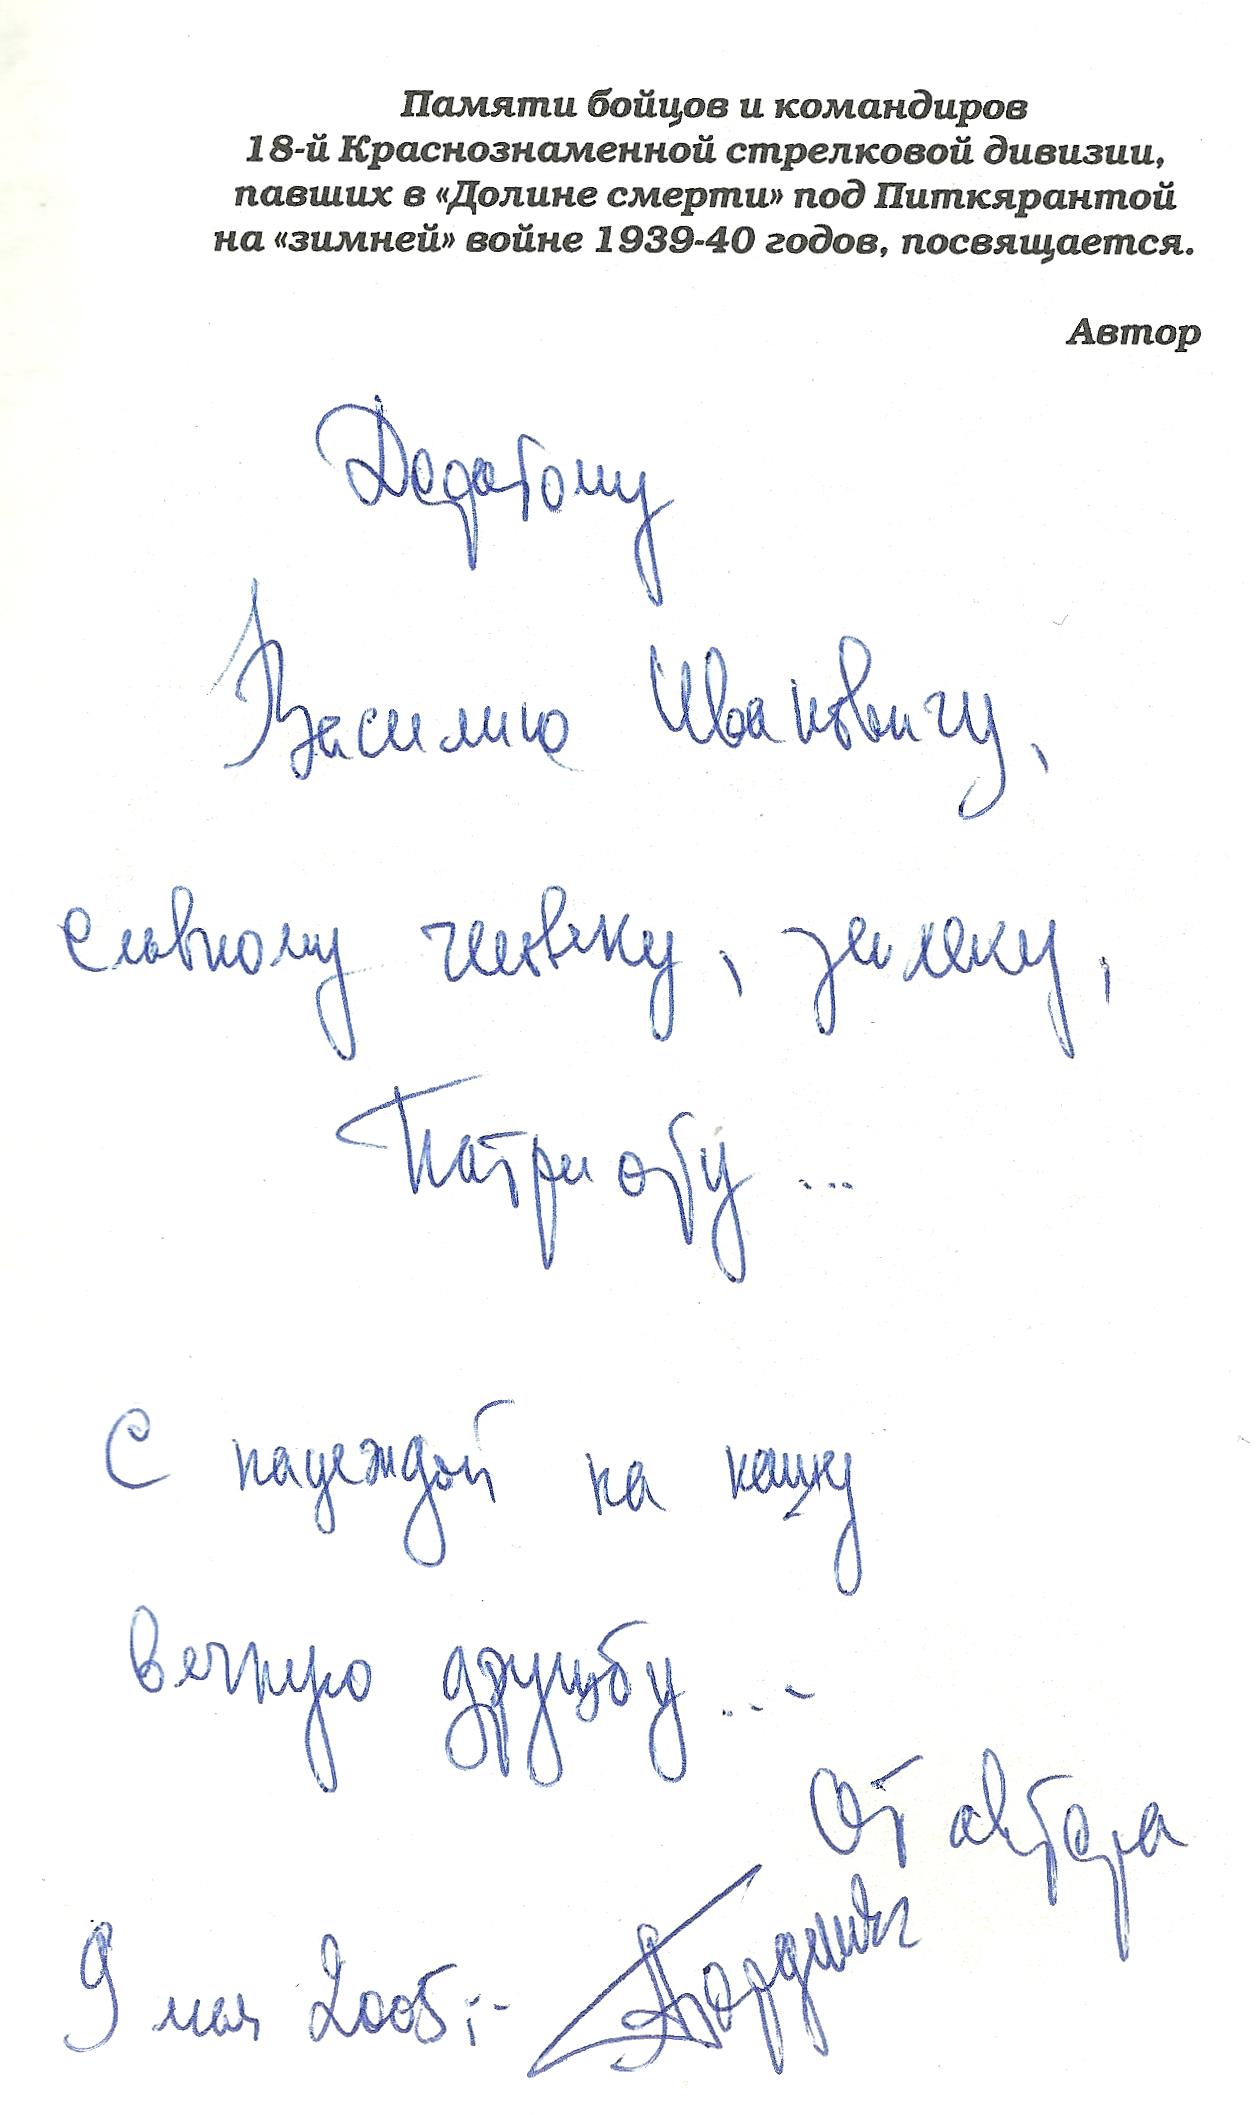 Памяти бойцов и командиров
18-й Краснознаменной стрелковой дивизии,
павших в «Долине смерти» под Питкярантой
на «зимней» войне 1939-40 годов, посвящается.
Автор
Василию Ивановичу,
славному человеку, земляку,
Патриоту ...
С надеждой на нашу
вечную дружбу...
От автора
9 мая 2005г.